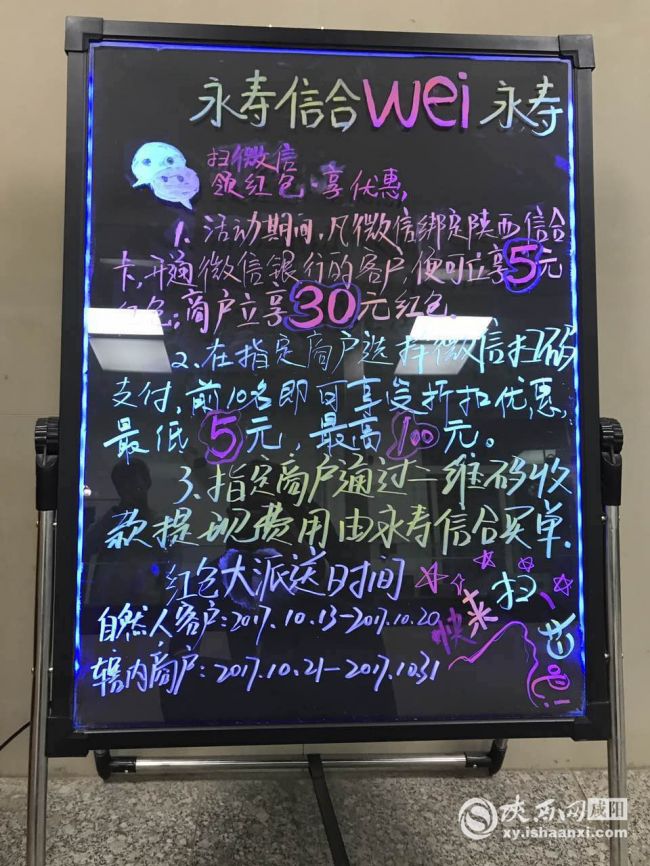 永寿信合wei永寿
扫微信
领红包·享优惠,
1.活动期间,凡微信绑定陕西信合
卡,开通微信银行的客户,便可立享5元
红包;商户立享30元红包。
2.在指定商户选择微信扫码
支付,前10名即可享受折扣优惠,
最低5元,最高100元。
3.指定商户通过二维码收
款提现费用由永寿信合买单.
红包大派送日时间
自然人客户:2017.10.13-2017.10.20
辖内商户:2017.10.21-2017.10.31
快来扫一扫吧!
陕西网 咸阳
xy.ishaanxi.com